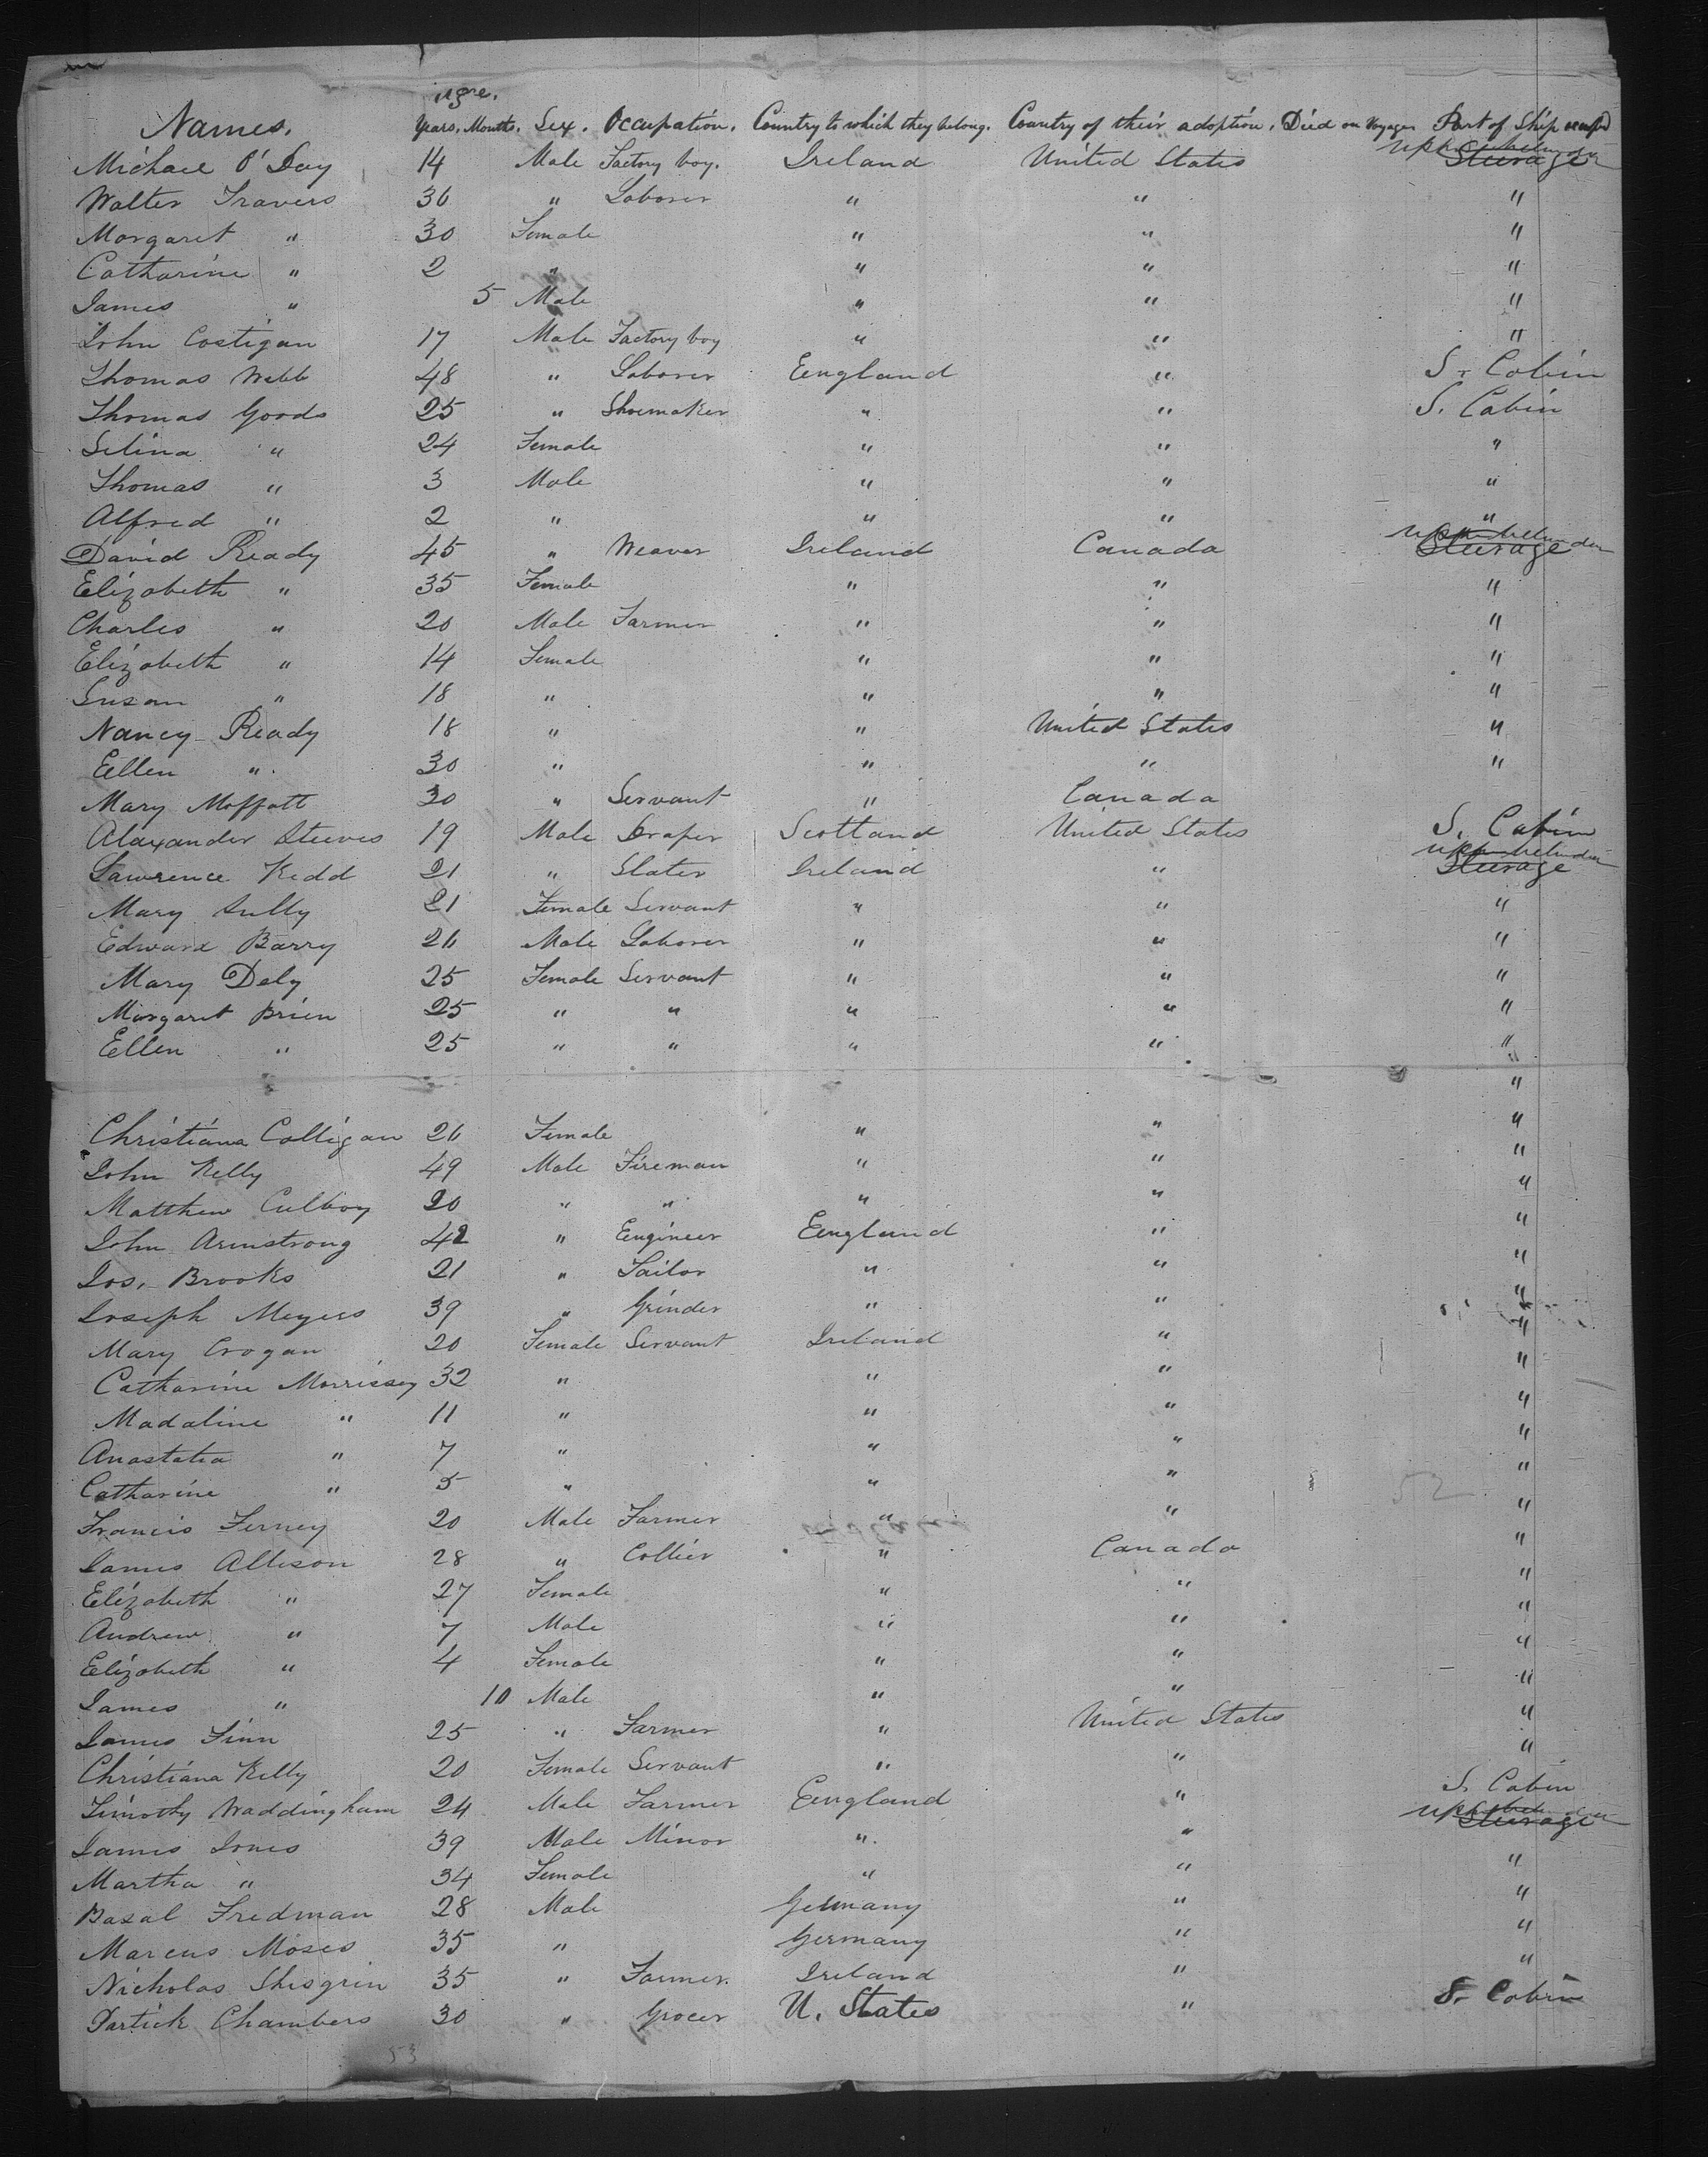 Age.
Names. Years. Months. Sex. Occupation. Country to which they belong. Country of their adoption. Died on Voyage Part of Ship occup'd
Michael O'Day 14 Male Factory boy. Ireland United States Steerage
Walter Travers 36 " Laborer " " "
Margaret " 30 Female " " "
Catharine " 2 " " " "
James " 5 Male " " "
John Costigan 17 Male Factory boy " " "
Thomas Webb 48 " Laborer England " S. Cabin
Thomas Goods 25 " Shoemaker " " S. Cabin
Selina " 24 Female " " "
Thomas " 3 Male " " "
Alfred " 2 " " " "
David Ready 45 " Weaver Ireland Canada Steerage
Elizabeth " 35 Female " " "
Charles " 20 Male Farmer " " "
Elizabeth " 14 Female " " "
Susan " 18 " " " "
Nancy Ready 18 " " United States "
Ellen " 30 " " " "
Mary Moffatt 30 " Servant " Canada
Alaxander Steeves 19 Male Draper Scotland United States S. Cabin
Lawrence Kedd 21 " Slater Ireland " Steerage
Mary Sully 21 Female Servant " " "
Edward Barry 26 Male Laborer " " "
Mary Daly 25 Female Servant " " "
Margaret Brien 25 " " " " "
Ellen " 25 " " " " "
"
Christiana Colligan 26 Female " " "
John Kelly 49 Male Fireman " " "
Matthew Culboy 20 " " " " "
John Armstrong 42 " Engineer England " "
Jos. Brooks 21 " Tailor " " "
Joseph Meyers 39 " Grinder " " "
Mary Crogan 20 Female Servant Ireland " "
Catharine Morrissey 32 " " " "
Madaline " 11 " " " "
Anastatia " 7 " " " "
Catharine " 5 " " " "
52
Francis Ferney 20 Male Farmer " " "
James Allison 28 " Collier " Canada "
Elizabeth " 27 Female " " "
Andrew " 7 Male " " "
Elizabeth " 4 Female " " "
James " 10 Male " " "
James Finn 25 " Farmer " United States "
Christiana Kelly 20 Female Servant " " "
Timothy Waddingham 24 Male Farmer England " S. Cabin
James Jones 39 Male Minor " " Steerage
Martha " 34 Female " " "
Basal Fredman 28 Male Germany " "
Marcus Moses 35 " Germany " "
Nicholas Shisgrin 35 " Farmer. Ireland " "
Partick Chambers 30 " Grocer U. States " S. Cabin
53